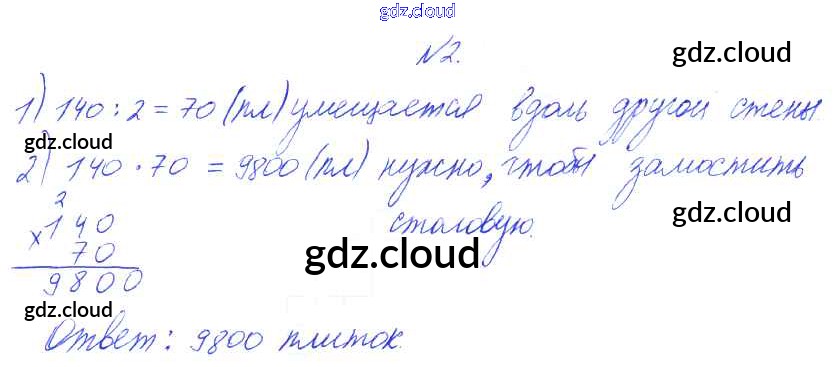 gdz.cloud
№2.
gdz.cloud
1) 140 : 2 = 70 (пл) умещается вдоль другой стены.
gdz.cloud
2) 140 · 70 = 9800 (пл) нужно, чтобы замостить
2
× 140 столовую.
gdz.cloud
70
gdz.cloud
9800
gdz.cloud
Ответ: 9800 плиток.
gdz.cloud
gdz.cloud